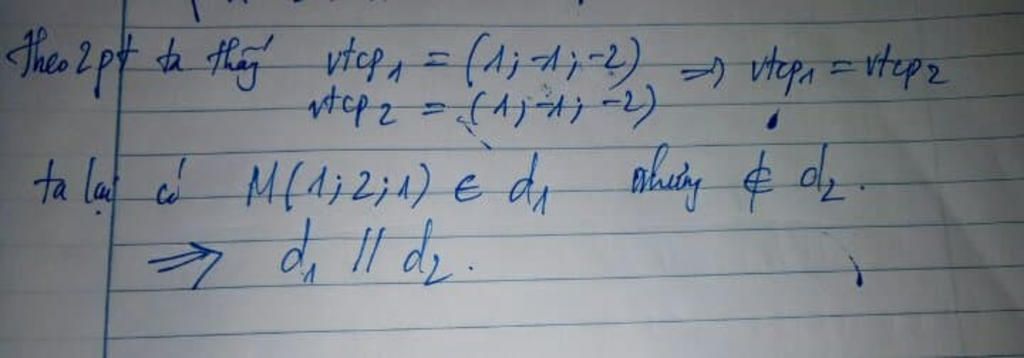 Theo 2 pt ta thấy vtcp₁ = (1; -1; -2) => vtcp₁ = vtcp₂
vtcp₂ = (1; -1; -2)
ta lại có M(1; 2; 1) ∈ d₁ nhưng ∉ d₂.
=> d₁ // d₂.